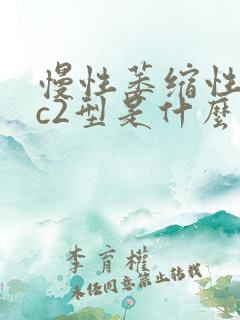 慢性萎缩性
c2型是什麼
李育權
未经同意禁止转载